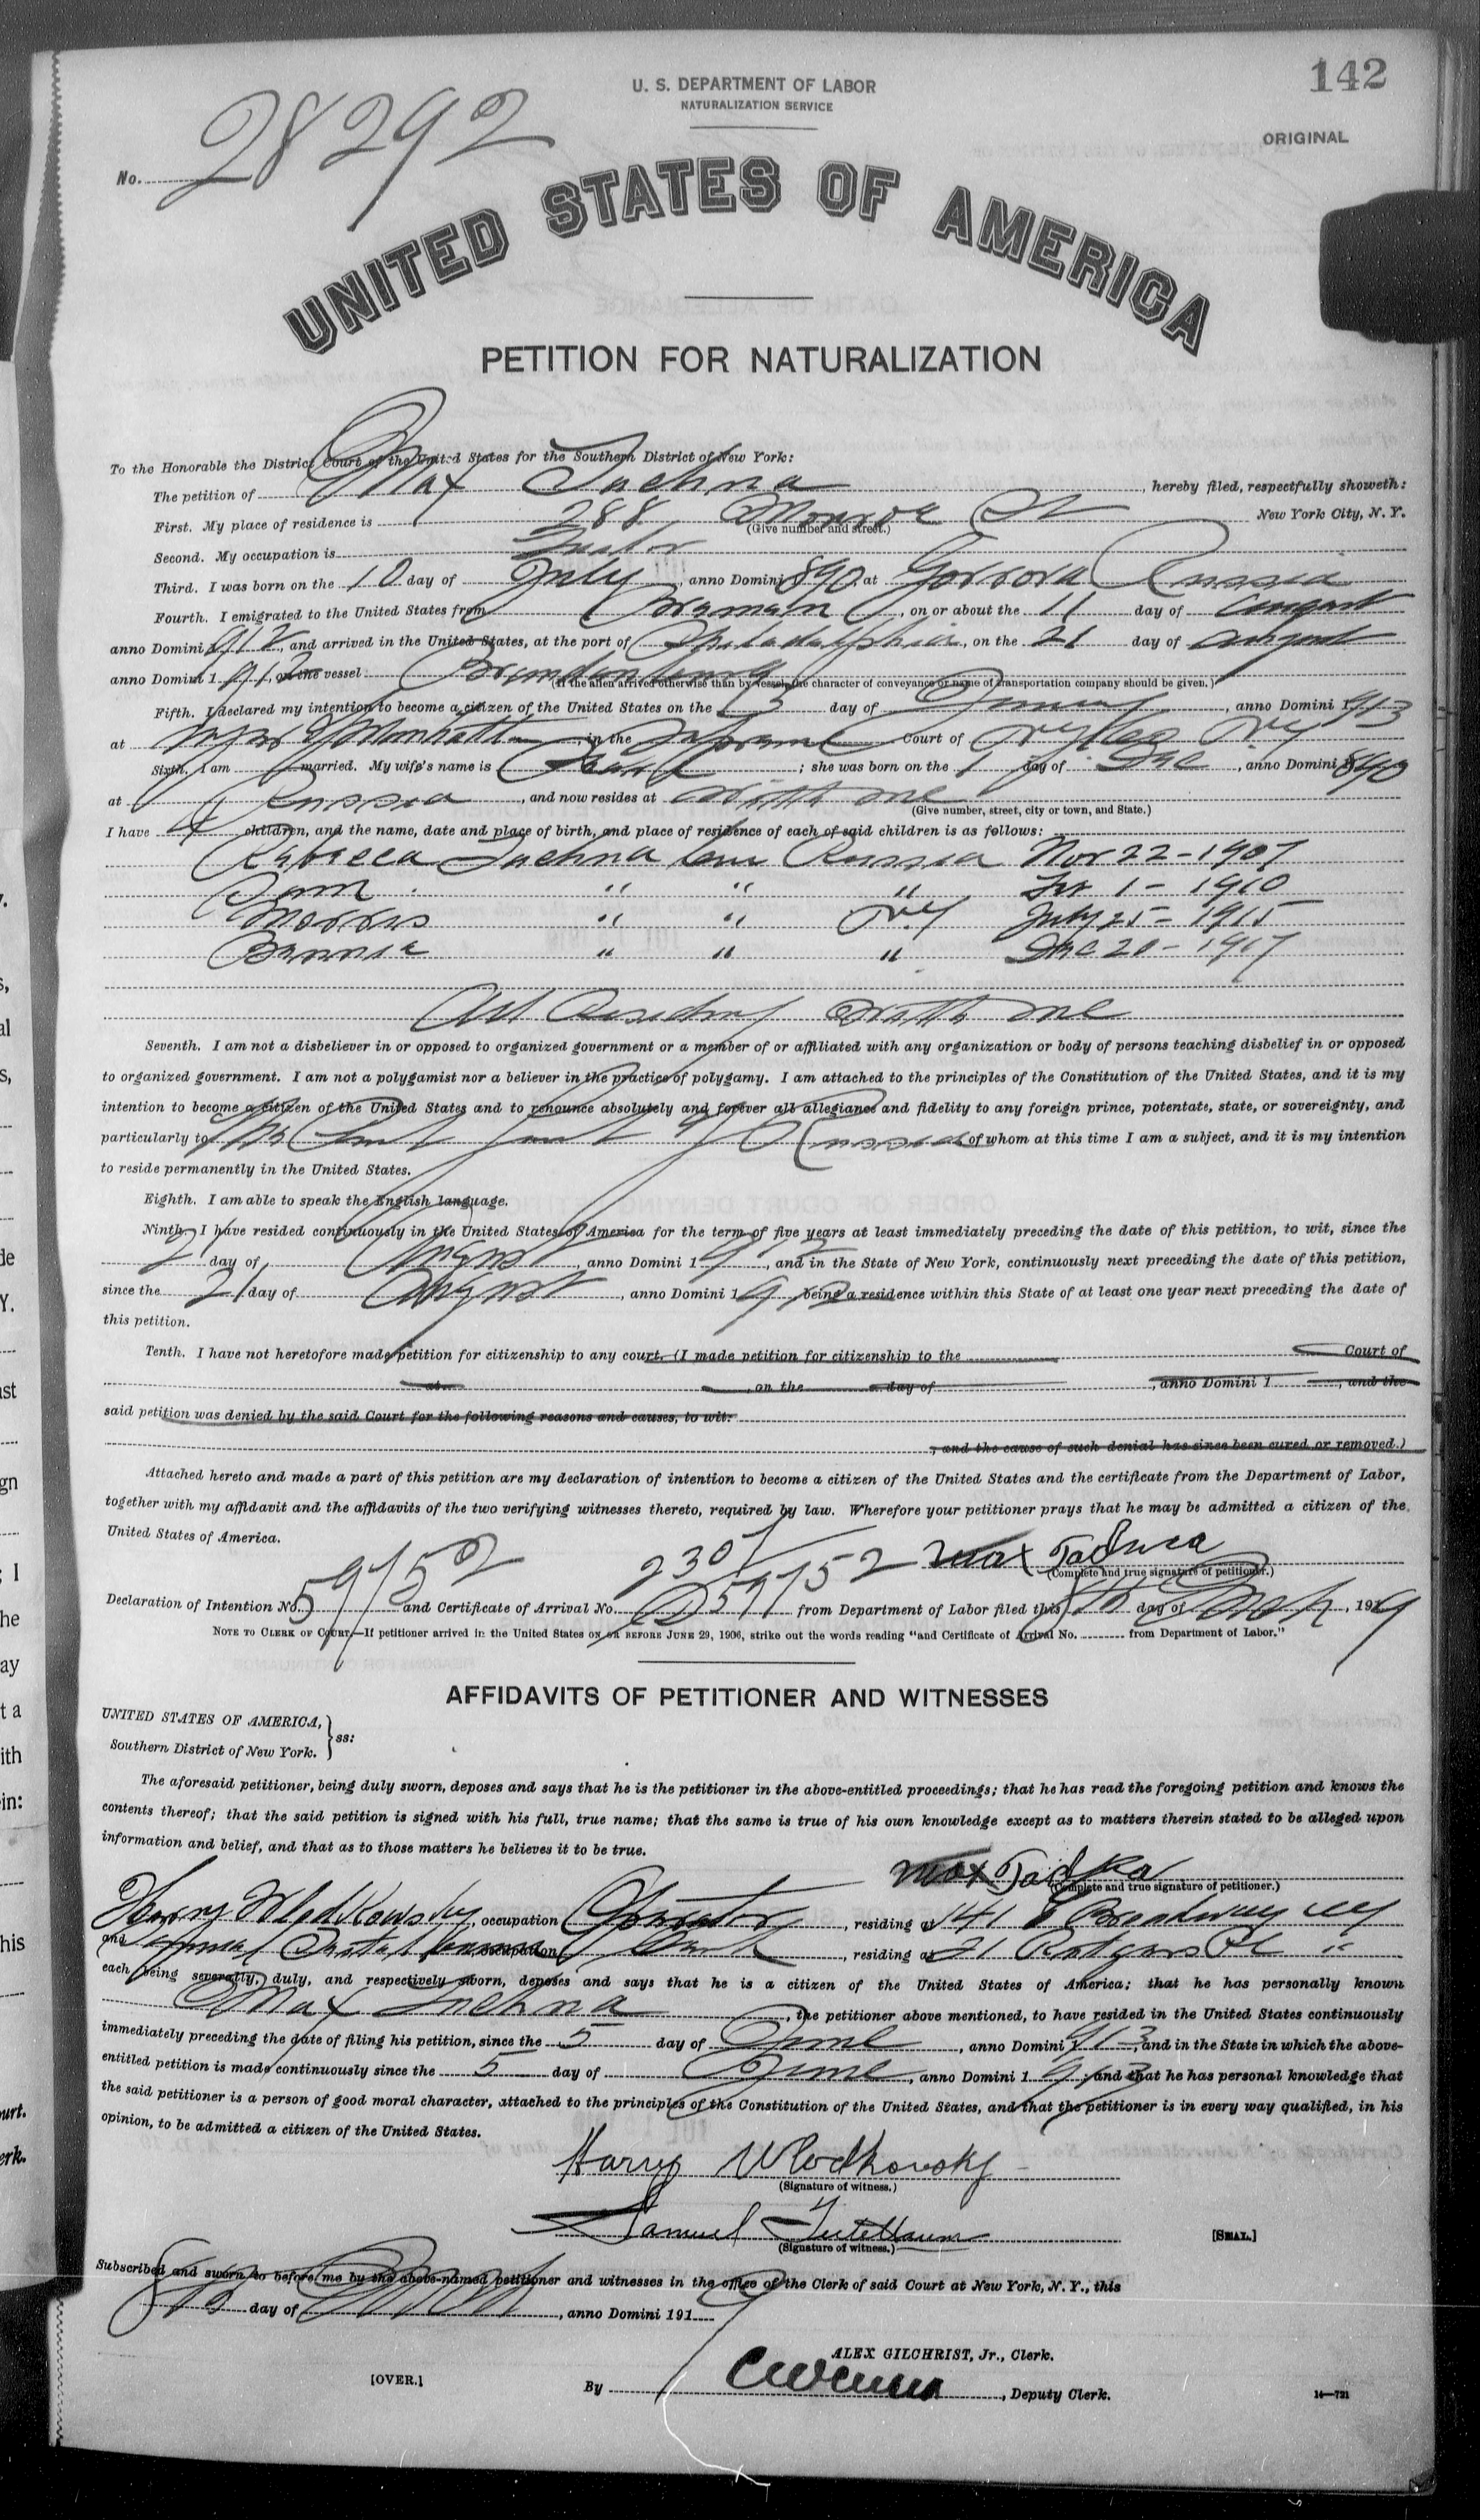 142
U. S. DEPARTMENT OF LABOR
NATURALIZATION SERVICE
ORIGINAL
No. 28292
UNITED STATES OF AMERICA
PETITION FOR NATURALIZATION
To the Honorable the District Court of the United States for the Southern District of New York:
The petition of Max Tuchna, hereby filed, respectfully showeth:
First. My place of residence is 288 Monroe St New York City, N. Y.
(Give number and street.)
Second. My occupation is
Third. I was born on the 10 day of July, anno Domini 1890 at Russia
Fourth. I emigrated to the United States from Bremen, on or about the 11 day of August
anno Domini 1912, and arrived in the United States, at the port of Philadelphia, on the 21 day of August
anno Domini 1912, on the vessel Brandenburg
(If the alien arrived otherwise than by vessel, the character of conveyance or name of transportation company should be given.)
Fifth. I declared my intention to become a citizen of the United States on the day of, anno Domini 1913
at Manhattan, in the Supreme Court of
Sixth. I am married. My wife's name is; she was born on the 1 day of Dec, anno Domini 1890
at Russia, and now resides at with me
(Give number, street, city or town, and State.)
I have 4 children, and the name, date and place of birth, and place of residence of each of said children is as follows:
Rebecca Tuchna born Russia Nov 22 - 1907
Sam " " " 1 - 1910
Morris " " NY July 25 - 1915
Bennie " " " Dec 20 - 1917
All Residing with me
Seventh. I am not a disbeliever in or opposed to organized government or a member of or affiliated with any organization or body of persons teaching disbelief in or opposed
to organized government. I am not a polygamist nor a believer in the practice of polygamy. I am attached to the principles of the Constitution of the United States, and it is my
intention to become a citizen of the United States and to renounce absolutely and forever all allegiance and fidelity to any foreign prince, potentate, state, or sovereignty, and
particularly to The of Russia of whom at this time I am a subject, and it is my intention
to reside permanently in the United States.
Eighth. I am able to speak the English language.
Ninth. I have resided continuously in the United States of America for the term of five years at least immediately preceding the date of this petition, to wit, since the
21 day of August, anno Domini 1912, and in the State of New York, continuously next preceding the date of this petition,
since the 21 day of August, anno Domini 1912, being a residence within this State of at least one year next preceding the date of
this petition.
Tenth. I have not heretofore made petition for citizenship to any court. (I made petition for citizenship to the Court of
at, on the day of, anno Domini 1, and the
said petition was denied by the said Court for the following reasons and causes, to wit:
, and the cause of such denial has since been cured or removed.)
Attached hereto and made a part of this petition are my declaration of intention to become a citizen of the United States and the certificate from the Department of Labor,
together with my affidavit and the affidavits of the two verifying witnesses thereto, required by law. Wherefore your petitioner prays that he may be admitted a citizen of the
United States of America.
Max
(Complete and true signature of petitioner.)
Declaration of Intention No. 59752 and Certificate of Arrival No. from Department of Labor filed this 8th day of March, 1919
NOTE TO CLERK OF COURT.—If petitioner arrived in the United States ON OR BEFORE JUNE 29, 1906, strike out the words reading "and Certificate of Arrival No. from Department of Labor."
AFFIDAVITS OF PETITIONER AND WITNESSES
UNITED STATES OF AMERICA,
Southern District of New York. } ss:
The aforesaid petitioner, being duly sworn, deposes and says that he is the petitioner in the above-entitled proceedings; that he has read the foregoing petition and knows the
contents thereof; that the said petition is signed with his full, true name; that the same is true of his own knowledge except as to matters therein stated to be alleged upon
information and belief, and that as to those matters he believes it to be true.
Max
(Complete and true signature of petitioner.)
Harry Wlodkowsky, occupation Operator, residing at 141 E Broadway NY
and Samuel, occupation, residing at 21 Rutgers Pl "
each being severally, duly, and respectively sworn, deposes and says that he is a citizen of the United States of America; that he has personally known
Max Tuchna, the petitioner above mentioned, to have resided in the United States continuously
immediately preceding the date of filing his petition, since the 5 day of June, anno Domini 1913, and in the State in which the above-
entitled petition is made continuously since the 5 day of June, anno Domini 1913, and that he has personal knowledge that
the said petitioner is a person of good moral character, attached to the principles of the Constitution of the United States, and that the petitioner is in every way qualified, in his
opinion, to be admitted a citizen of the United States.
Harry Wlodkovsky
(Signature of witness.)
Samuel
(Signature of witness.)
[SEAL.]
Subscribed and sworn to before me by the above-named petitioner and witnesses in the office of the Clerk of said Court at New York, N. Y., this
8th day of March, anno Domini 1919
ALEX GILCHRIST, Jr., Clerk.
[OVER.]
By, Deputy Clerk.
14—721